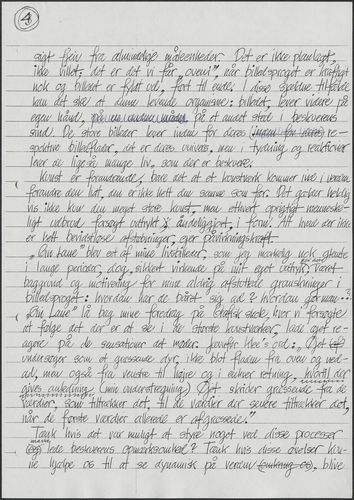 4
sigt fjern fra almindelige måleenheder. Det er ikke planlagt,
ikke villet; det er det vi får "oveni", når billedsproget er kraftigt
nok og billedet er fyldt ud, ført til ende. I disse sjældne tilfælde
kan det ske at danne levende organisme: billedet, lever videre på
egen hånd, på et andet sted i beskuerens
sind. De store billeder lever inden for deres re-
spektive billedflader, det er deres univers, men i tydning og reaktioner
lever de ligeså mange liv, som der er beskuere.
Kunst er foranderende, bare det at et kunstværk kommer ind i verden
forandrer den lidt, den er ikke helt den samme som før. Det gælder heldig
vis ikke kun den meget store kunst, men ethvert oprigtigt menneske-
ligt udbrud forsøgt udtrykt åndeliggjort, i form. Alt hvad der ikke
er helt bevidstløse afstøbninger, ejer påvirkningskraft.
"Om Lane" blev et af mine livsbilleder, som jeg mærkelig nok glemte
i lange perioder, dog sikkert virkende på mit eget udtryk, været
baggrund og motivering for mine aldrig afsluttede granskninger i
billedsproget: hvordan har de båret sig ad? hvordan gør man..?
"Om Lane" lå bag mine foredrag på Grafisk skole, hvor vi forsøgte
at følge det der er at se i de største kunstværker, lade øjet re-
agere på de sensationer det møder. Jævnfør Klee's ord: "Det
undersøger som et græssende dyr, ikke blot fladen fra oven og ned-
ad, men også fra venstre til højre og i enhver retning, hvortil der
gives anledning (min understregning) Det skrider græssende fra de
værdier, som tiltrækker det, til de værdier der senere tiltrækker det,
når de første værdier allerede er afgræssede."
Tænk hvis det var muligt at styre noget ved disse processer
lede beskuerens opmærksomhed? Tænk hvis disse øvelser kun-
ne hjælpe os til at se dynamisk på verden, blive